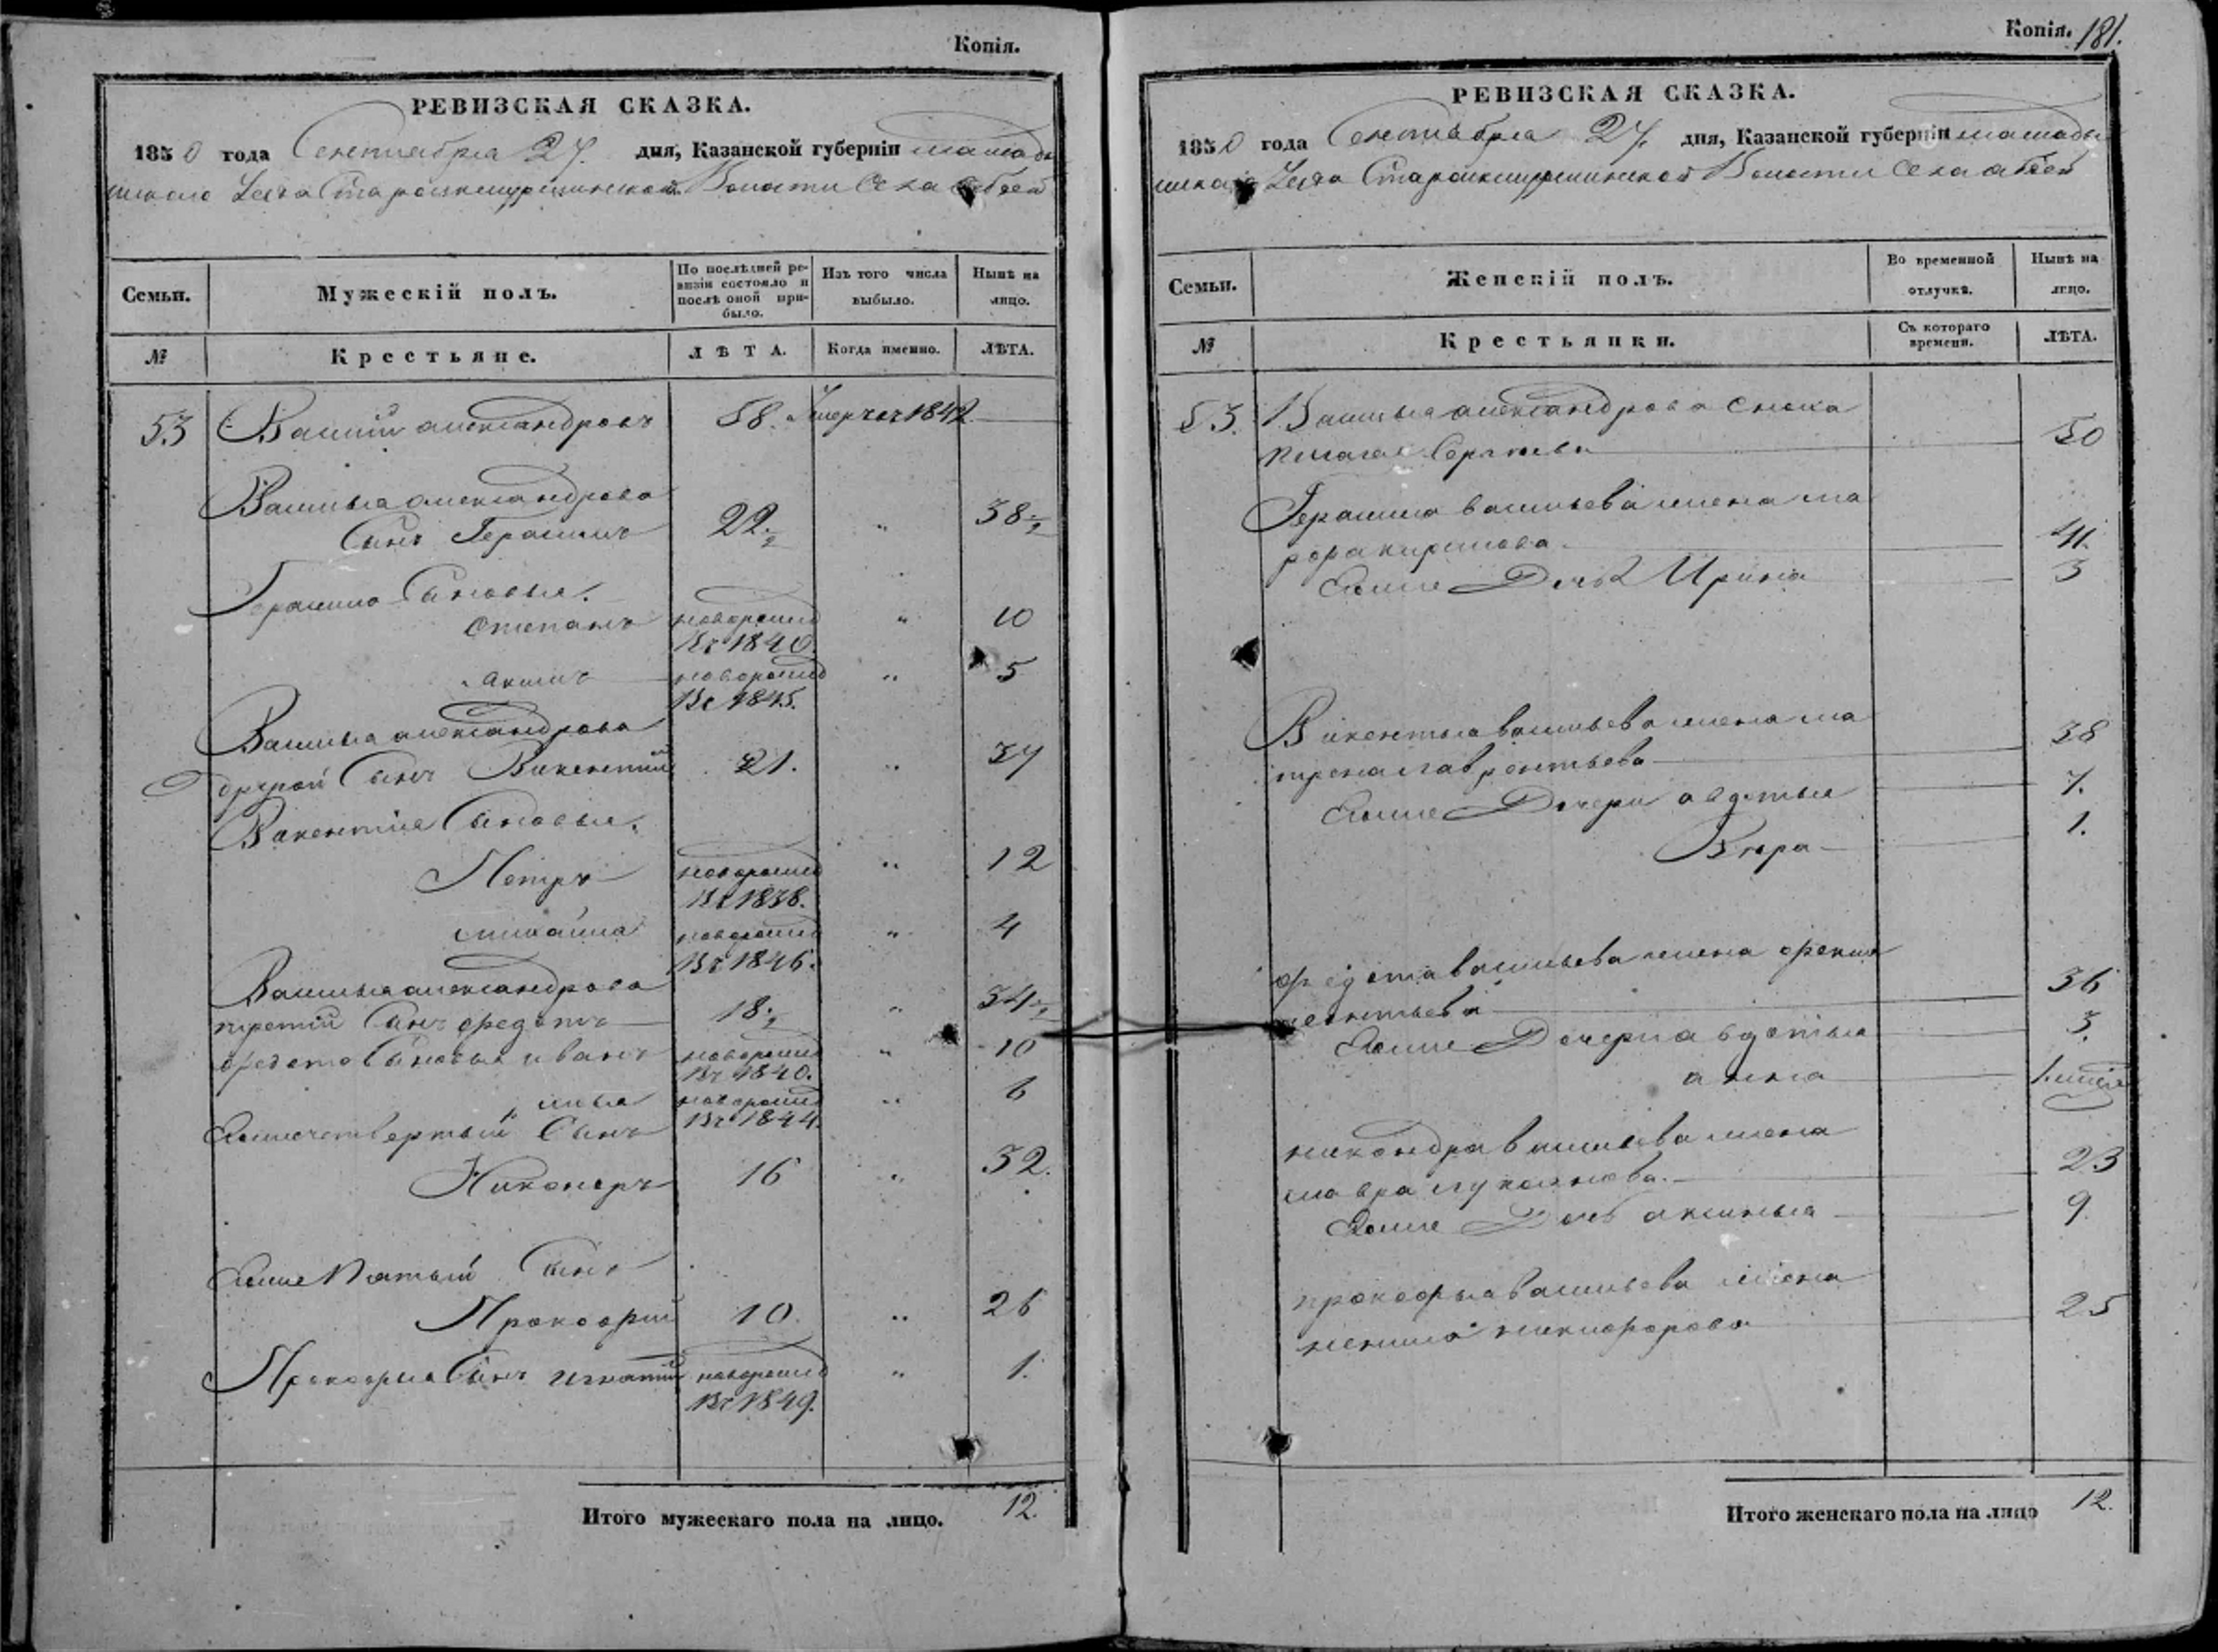 Копія.
РЕВИЗСКАЯ СКАЗКА.
1850 года Сентября 27. дня, Казанской губерніи мамады
шскаго Уезда Волости Села
Семьи.
Мужескій полъ.
По послѣдней ре-
визіи состояло и
послѣ оной при-
было.
Изъ того числа
выбыло.
Нынѣ на
лицо.
№
Крестьяне.
ЛѢТА.
Когда именно.
ЛѢТА.
53 Василий александровъ 58. Умерчего 1842
Василья александрова
Сынъ Герасимъ 22.½ " 38½
Герасима Сыновья.
Степанъ новорожд " 10
Въ 1840.
акимъ новорожд " 5
Въ 1845.
Василья александрова
другой Сынъ Викентий 21. " 37
Викентия Сыновья.
Петръ новорожд " 12
Въ 1838.
михайла новорожд " 4
Въ 1846.
Василья александрова
третий Сынъ федотъ 18.½ " 34½
федота Сыновья иванъ новорожд " 10
Въ 1840.
илья новорожд " 6
Въ 1844.
Егоже четвертый Сынъ
Никаноръ 16 " 32.
Егоже Пятый Сынъ
Прокофий 10. " 26
Прокофья Сынъ игнатий новорожд " 1.
Въ 1849.
Итого мужескаго пола на лицо. 12.
Копія. 181.
РЕВИЗСКАЯ СКАЗКА.
1850 года Сентября 27. дня, Казанской губерніи мамады
шскаго Уезда Волости Села
Семьи.
Женскій полъ.
Во временной
отлучкѣ.
Нынѣ на
лицо.
№
Крестьянки.
Съ котораго
времени.
ЛѢТА.
53. Василья александрова Сноха
Пелагея Сергеева 50
Герасима васильева жена ма
рфа кирилова 41.
Егоже Дочь Ирина 3
Викентья васильева жена ма
трена лаврентьева 38
Егоже Дочери авдотья 7.
Вера 1.
федота васильева жена фекла
леонтьева 36
Егоже Дочери авдотья 3.
анна 1.
никандра васильева жена
мавра лукоянова. 23
Егоже Дочь аксинья 9
прокофья васильева жена
ненила никифорова 25
Итого женскаго пола на лицо 12.